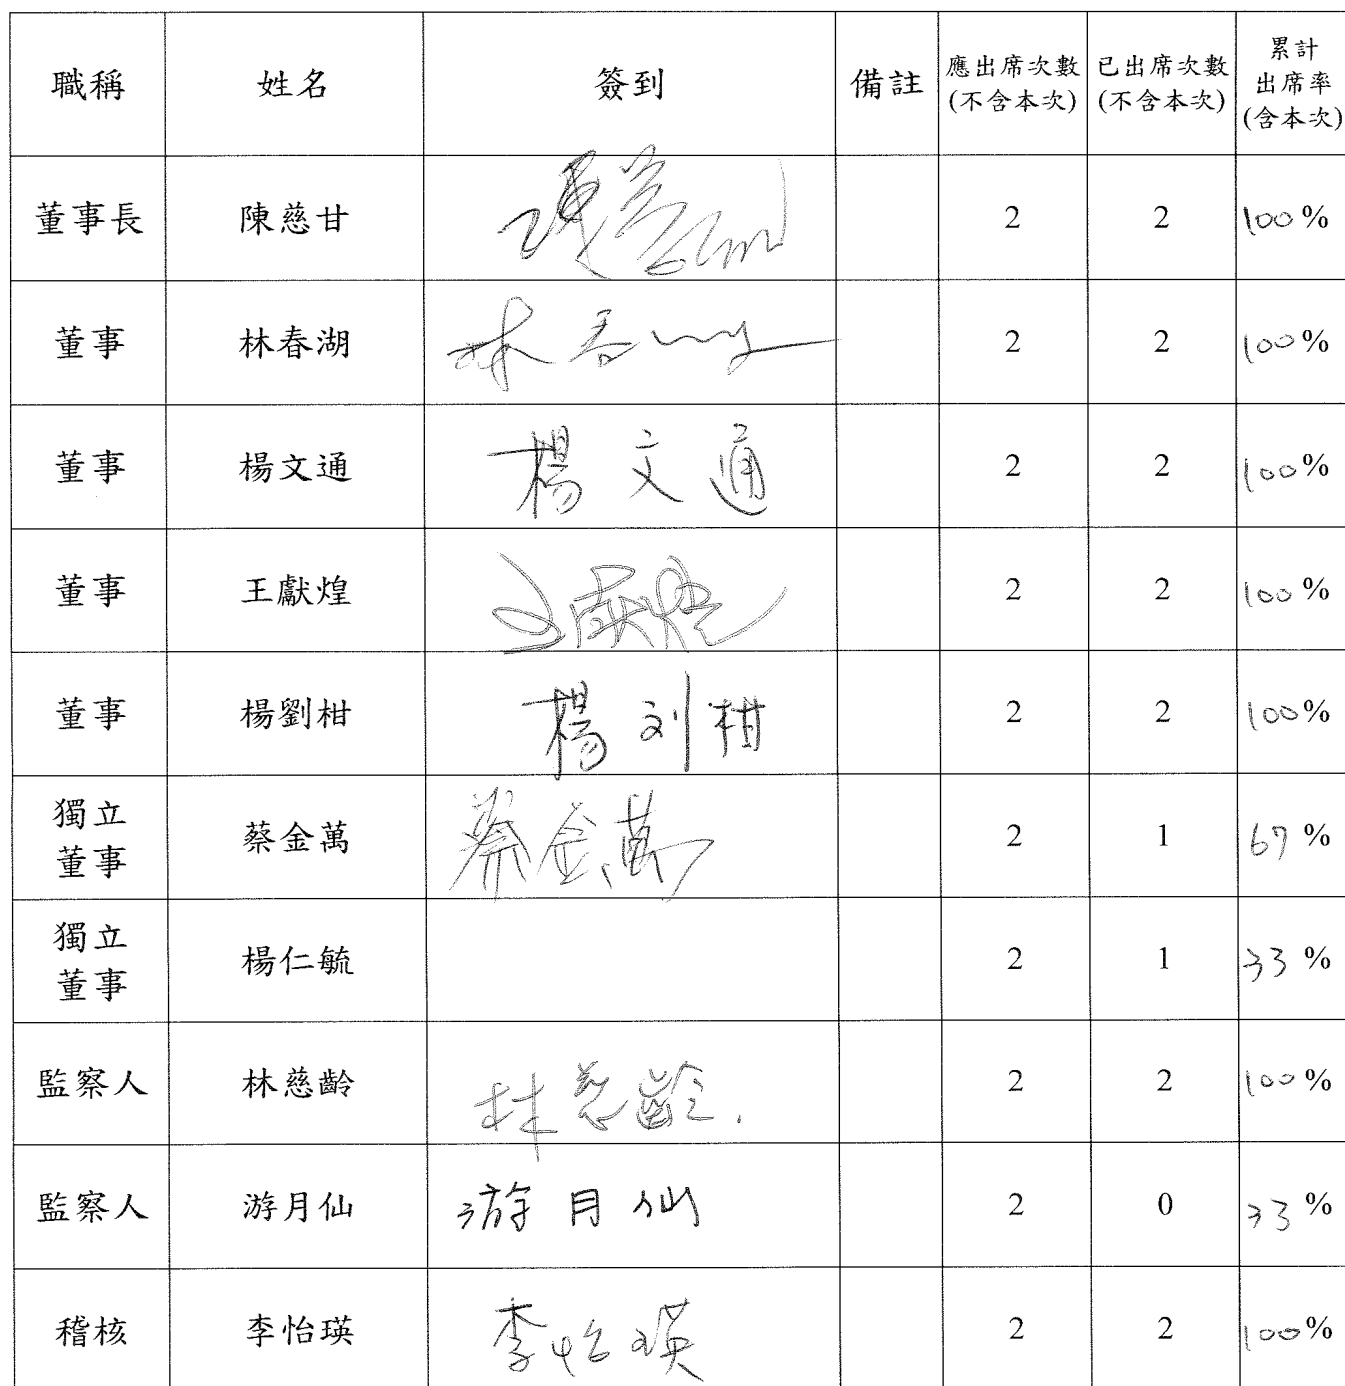 職稱 姓名 簽到 備註 應出席次數(不含本次) 已出席次數(不含本次) 累計出席率(含本次)
董事長 陳慈甘 2 2 100%
董事 林春湖 林春湖 2 2 100%
董事 楊文通 楊文通 2 2 100%
董事 王獻煌 王獻煌 2 2 100%
董事 楊劉柑 楊刘柑 2 2 100%
獨立董事 蔡金萬 蔡金萬 2 1 67%
獨立董事 楊仁毓 2 1 33%
監察人 林慈齡 林慈齡 2 2 100%
監察人 游月仙 游月仙 2 0 33%
稽核 李怡瑛 李怡瑛 2 2 100%